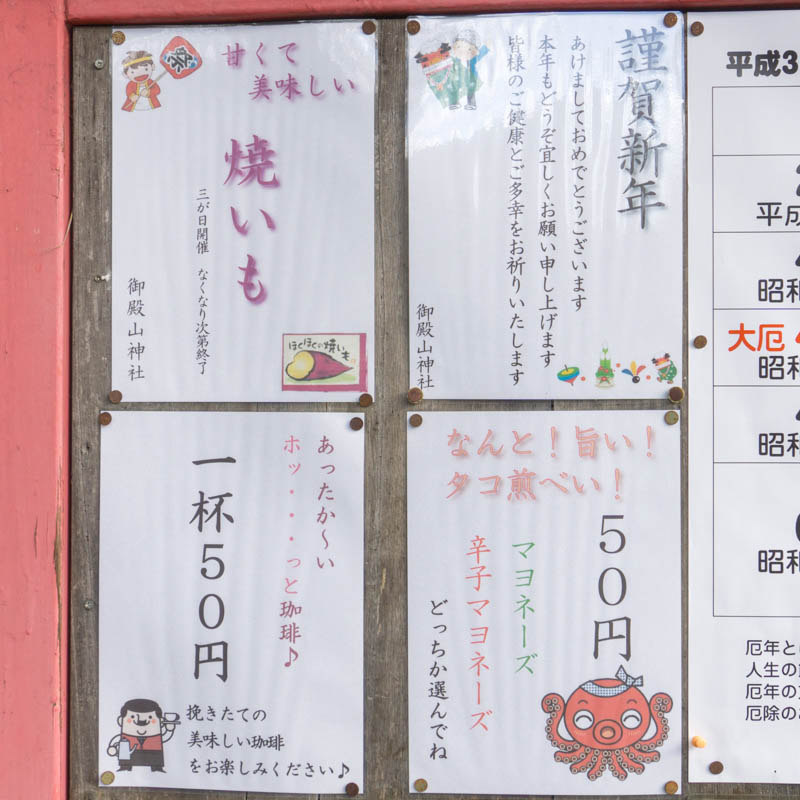 甘くて
美味しい
焼いも
三が日開催 なくなり次第終了
御殿山神社
ほくほくの焼いも
謹賀新年
あけましておめでとうございます
本年もどうぞ宜しくお願い申し上げます
皆様のご健康とご多幸をお祈りいたします
御殿山神社
あったか〜い
ホッ・・・・っと珈琲♪
一杯50円
挽きたての
美味しい珈琲
をお楽しみください♪
なんと！旨い！
タコ煎べい！
50円
マヨネーズ
辛子マヨネーズ
どっちか選んでね
平成3
平成
昭和
大厄
昭和
昭和
昭和
厄年と
人生の
厄年の
厄除の